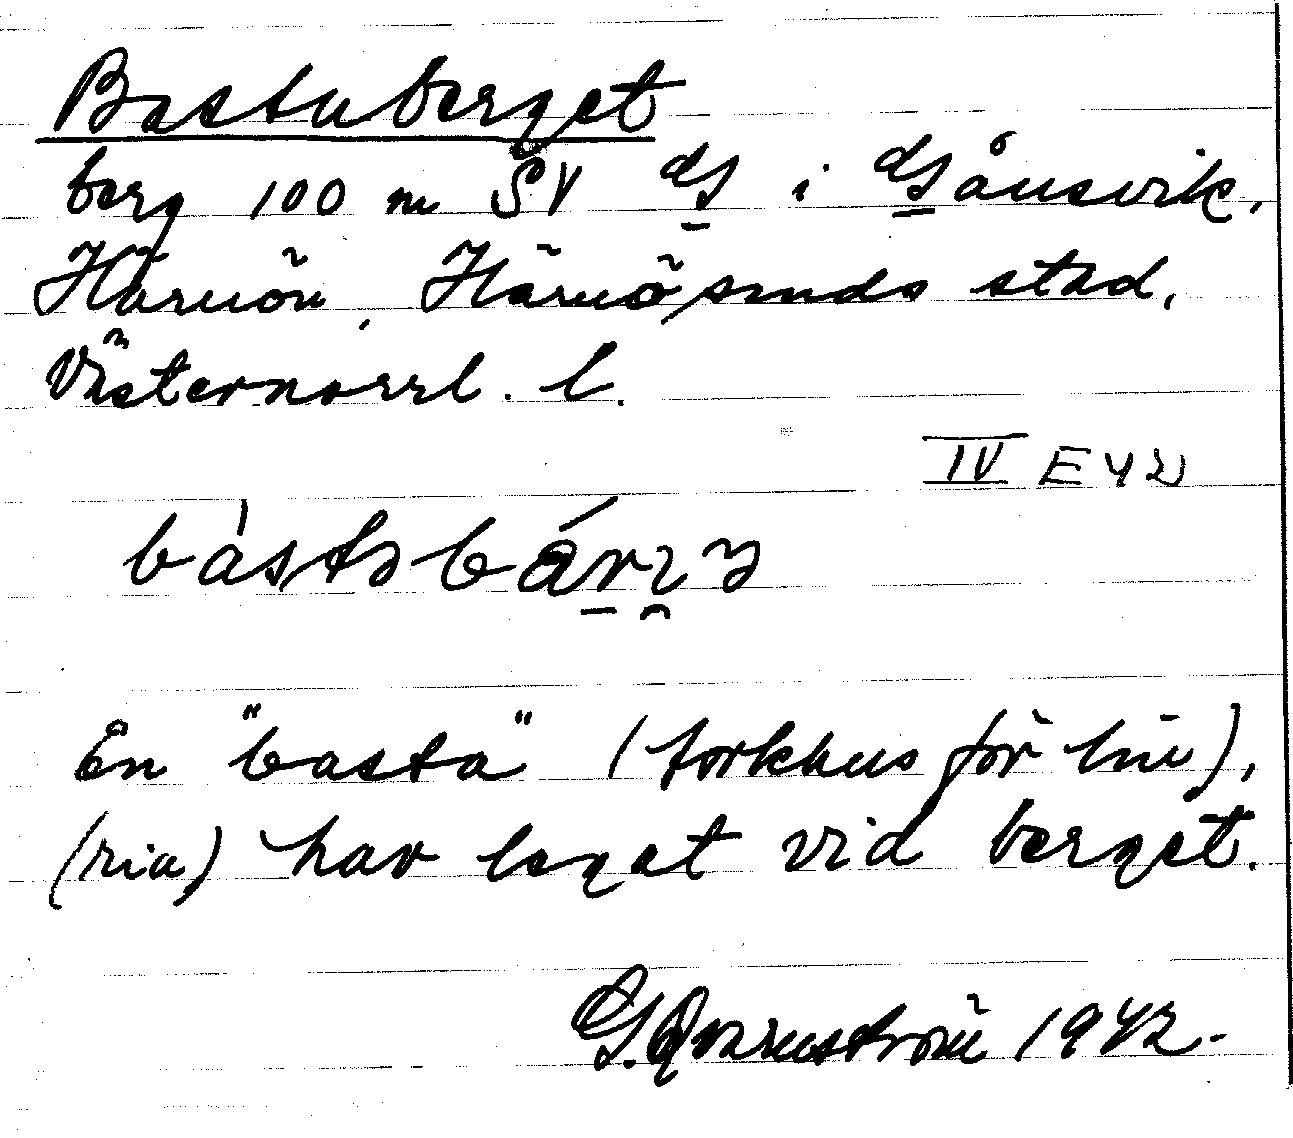 Bastuberget
berg 100 m SV G i Gånsvik,
Härnön, Härnösands stad,
Västernorrl. l.
IV E 42
En "basta" (torkhus för lin),
(ria) har legat vid berget.
G. Qvarnström 1942.